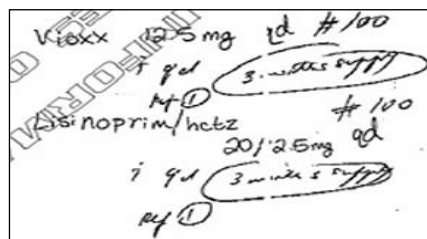 Vioxx 12.5 mg qd # 100
i qd 3 months supply
Ref 1
# 100
Lisinoprim/hctz
20/12.5mg qd
i qd 3 months supply
Ref 1